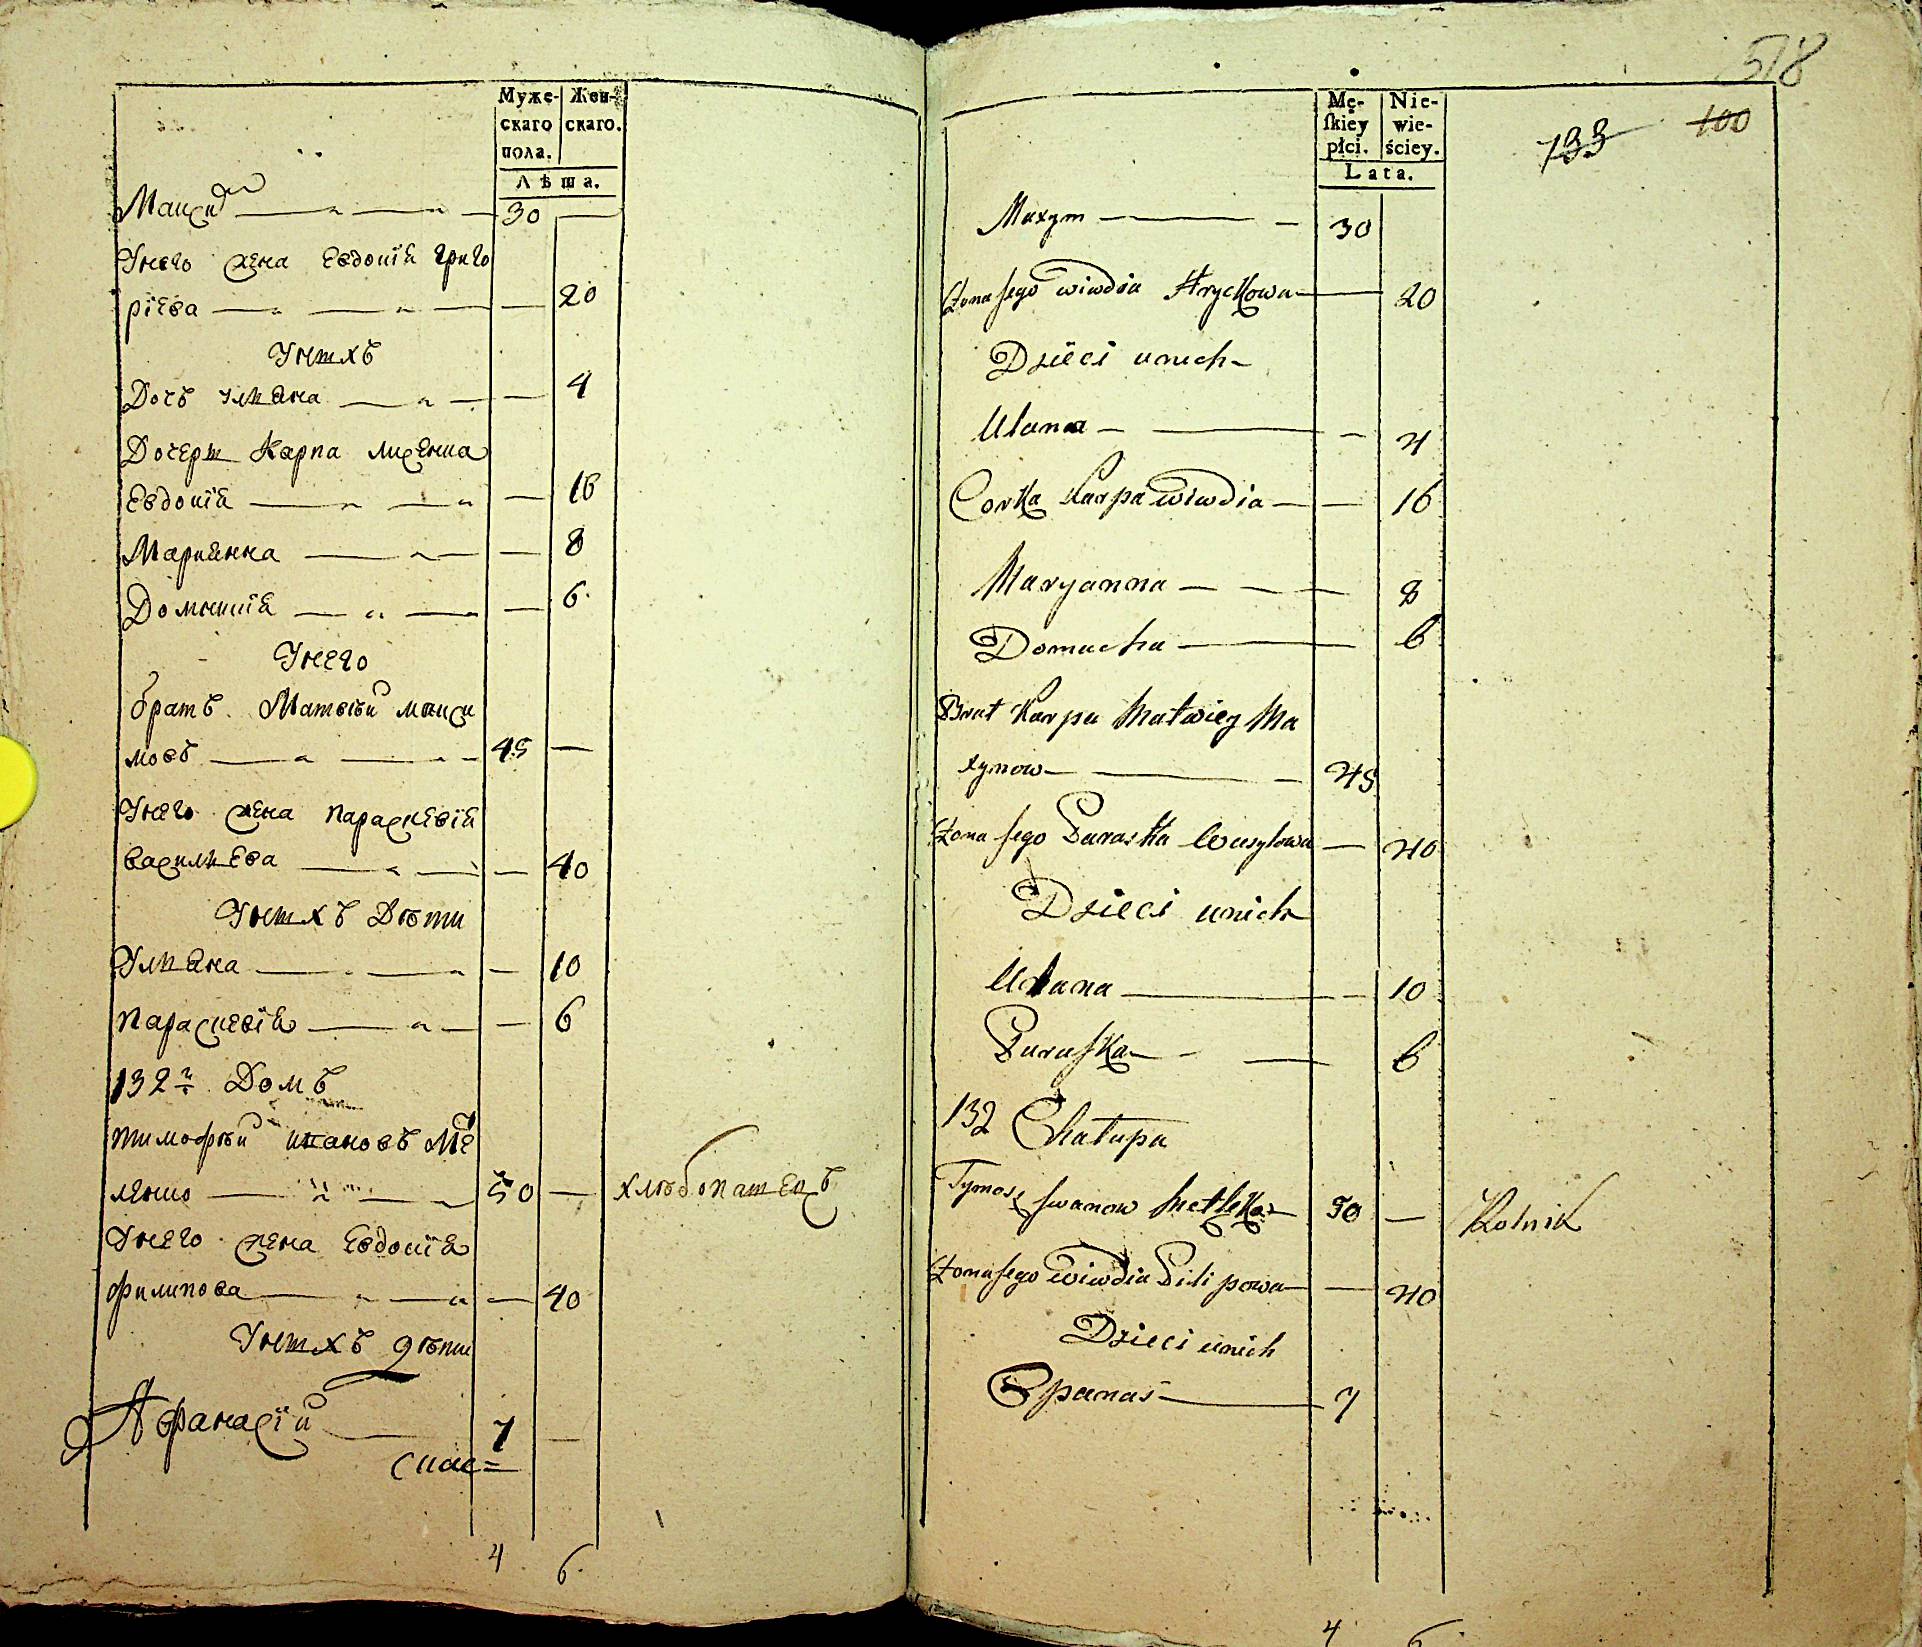 Муже-
скаго
пола.
Жен-
скаго.
Лѣта.
Максим 30
Унего жена Евдокїя григо
рїева 20
Унихъ
Дочъ улияна 4
Дочери Карпа
Евдокїя 16
Мариянна 8
Домникїя 6
Унего
братъ Матвѣй макси
мовъ 45
Унего жена параскевїя
василиева 40
Унихъ Дѣти
Улияна 10
параскевїя 6
132й Домъ
тимофѣй ивановъ Ме
50 хлѣбопашецъ
Унего жена Евдокїя
филипова 40
Унихъ дѣти
Афанасїй 7
4 6
578
133 100
Mę-
ſkiey
płci.
Nie-
wie-
ściey.
Lata.
Maxym 30
Żona Jego Wiwdia Hryckowa 20
Dzieci unich
Ulana 4
Corka Karpa Wiwdia 16
Maryanna 8
Domacha 6
Brat Karpa Matwiey Ma
xymow 45
Żona Jego Paraska Wasylowa 40
Dzieci unich
Ulana 10
Paraſka 6
132 Chałupa
Tymosz Jwanow 50 Rolnik
Żona Jego Wiwdia Pilipowa 40
Dzieci unich
Opanas 7
4 6